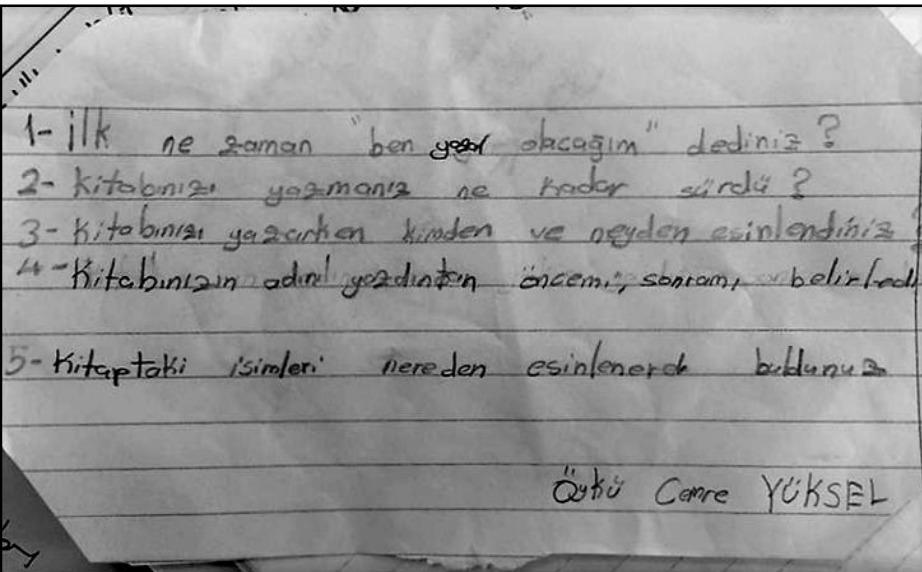 1- ilk ne zaman "ben yazar olacağım" dediniz?
2- Kitabınızı yazmanız ne kadar sürdü?
3- Kitabınızı yazarken kimden ve neyden esinlendiniz?
4- Kitabınızın adını yazdıntan öncemi, sonramı belirledi
5- Kitaptaki isimleri nereden esinlenerek buldunuz
Öykü Cemre YÜKSEL